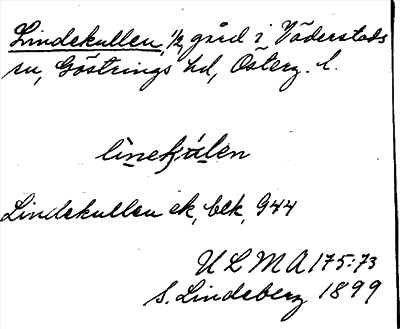 Lindekullen, 1/2, gård i Väderstads
sn, Göstrings hd, Österg. l.
Lindekullen ek, blk, 944
ULMA 175:73
S. Lindeberg 1899